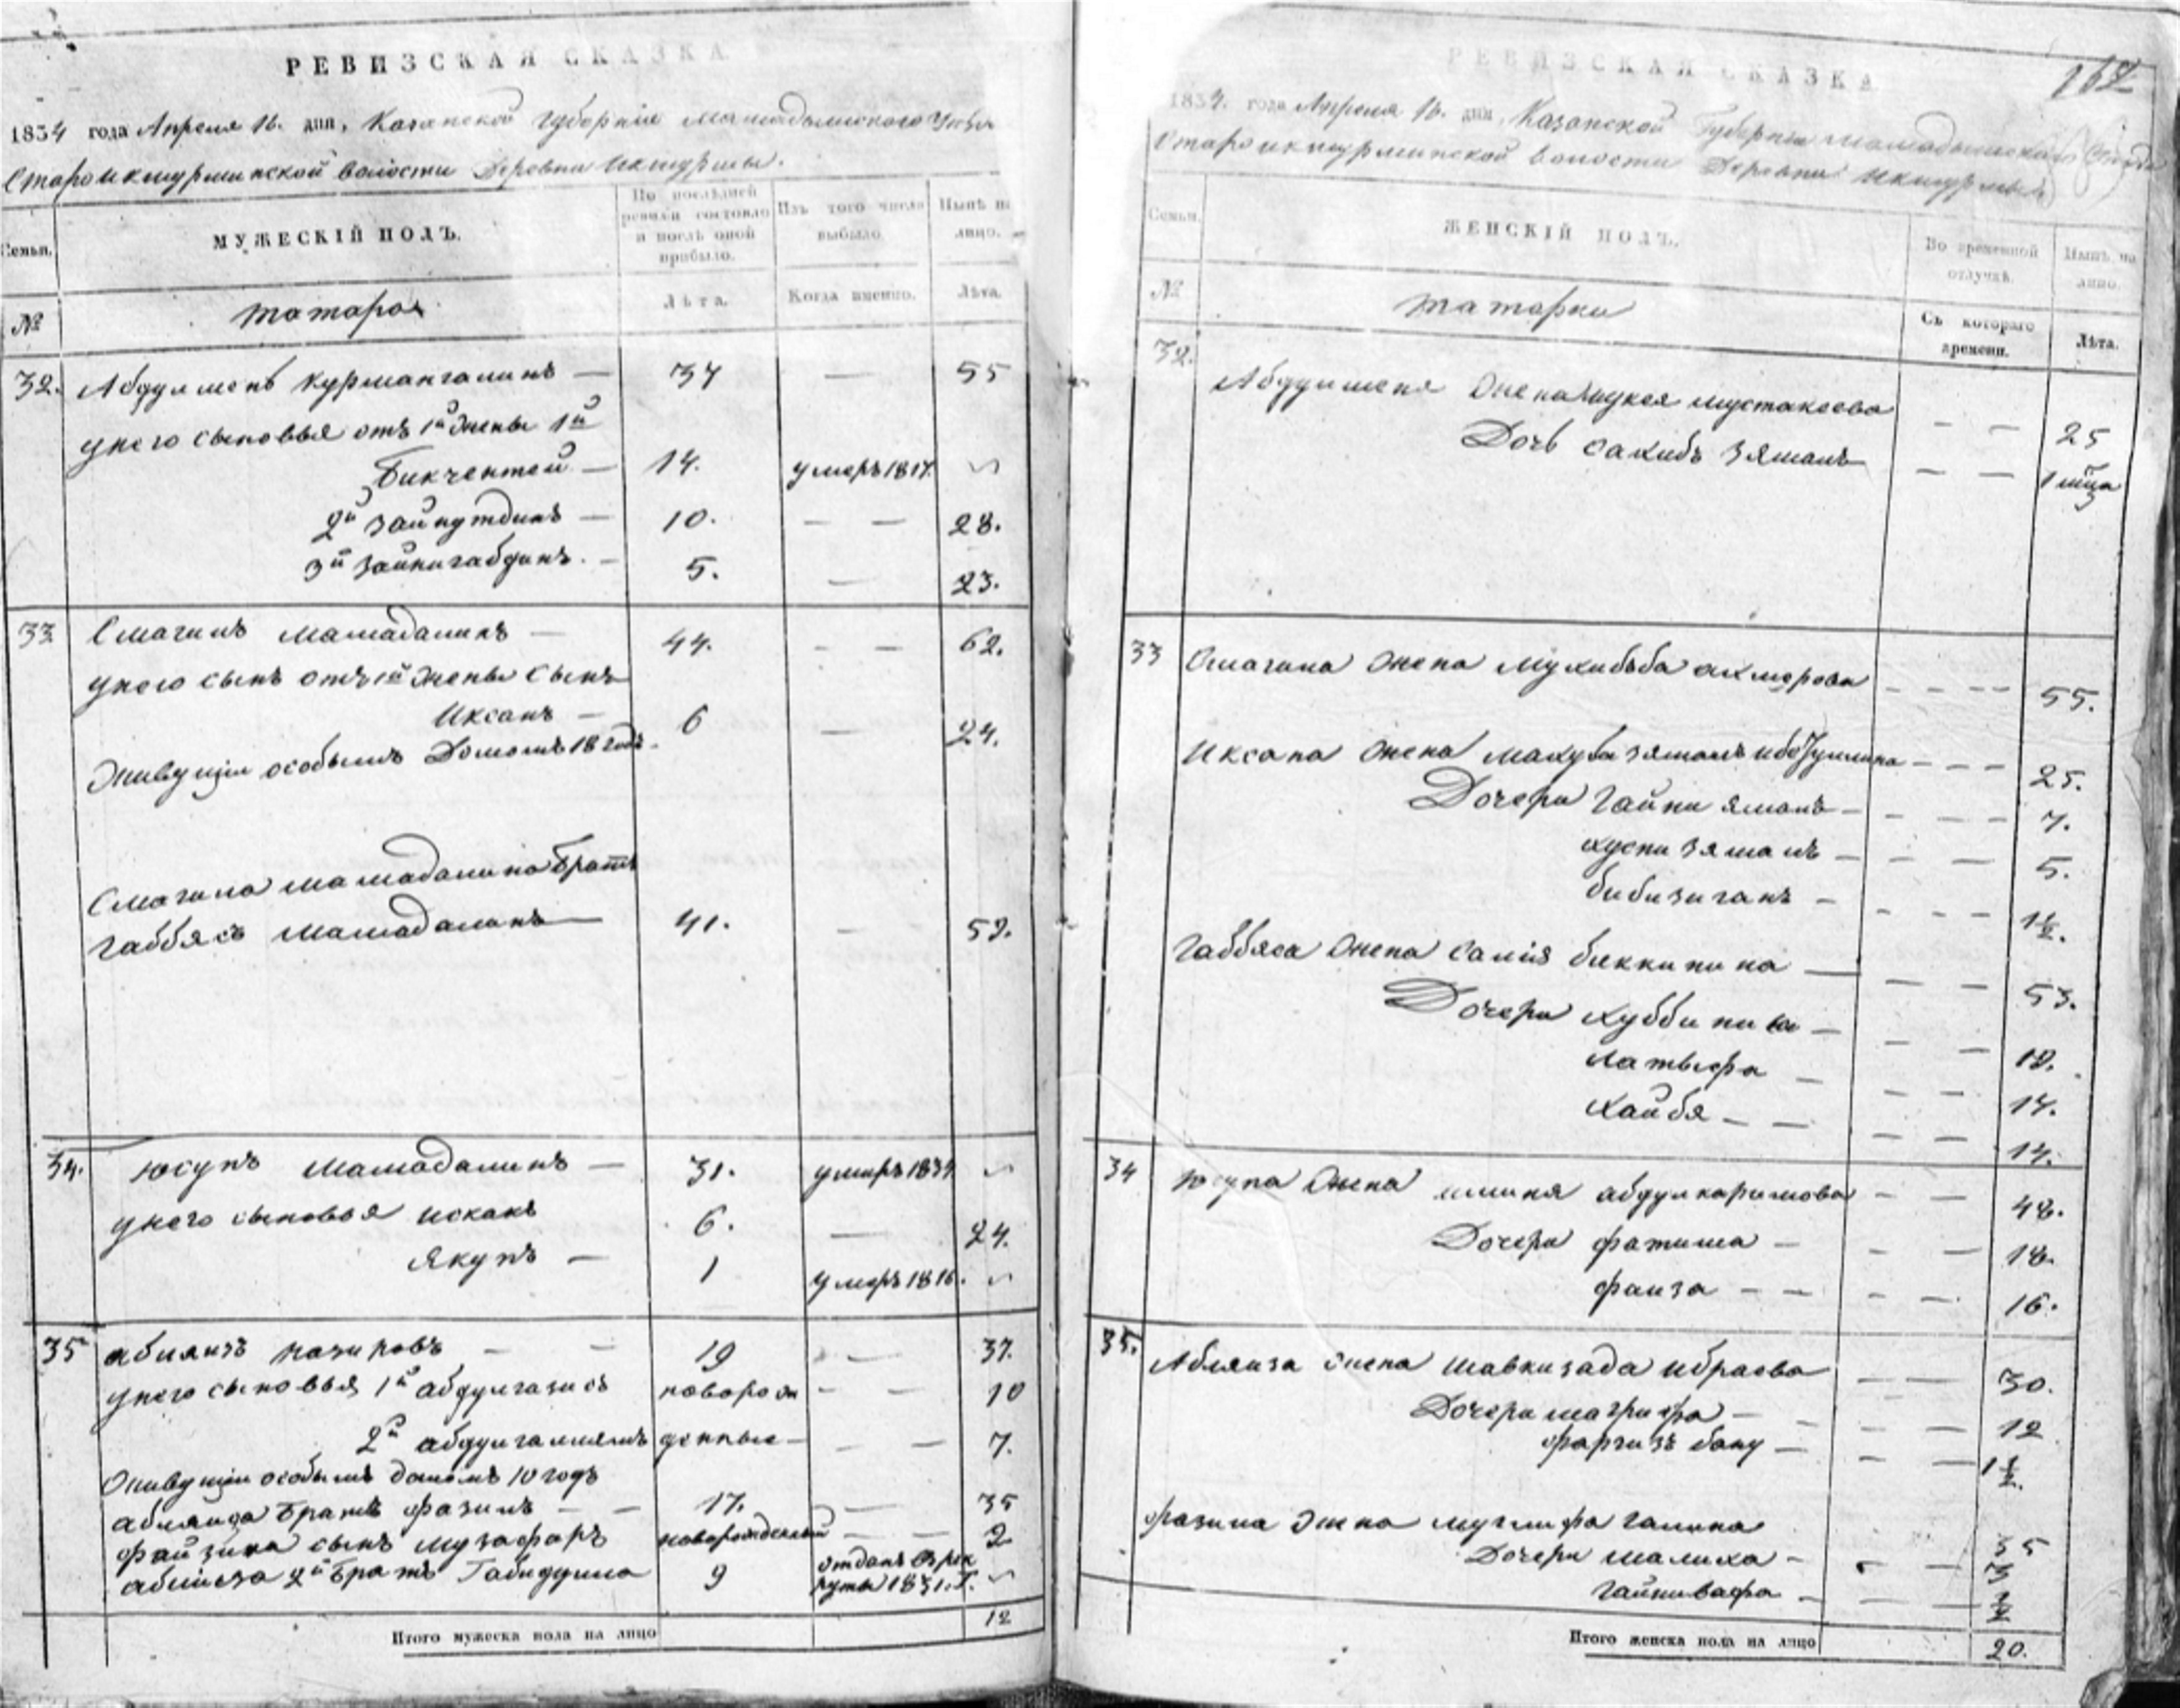 РЕВИЗСКАЯ СКАЗКА
1834 года Апреля 16. дня, Казанской Губернiи Мамадышского Уезда
Староикшурминской волости Деревни Икшурмы.
Семьи.
МУЖЕСКIЙ ПОЛЪ.
По послѣдней ревизiи состояло и послѣ оной прибыло.
Изъ того числа выбыло.
Нынѣ на лицо.
№
татара
Лѣта.
Когда именно.
Лѣта.
32. Абдулменъ Курмангалинъ — 37 — 55
у него сыновья отъ 1й жены 1й
Бикчентей — 14. умеръ 1817.
2й Зайнутдинъ — 10. — — 28.
3й Зайнигабдинъ. — 5. — 23.
33 Смагилъ Мамадалинъ — 44. — — 62.
у него сынъ отъ 1й жены сынъ
Иксанъ — 6 — 24.
Живущiи особымъ домомъ 18 годъ.
Смагила Мамадалина братъ
Габбясъ Мамадалинъ — 41. — 59.
34. Юсупъ Мамадалинъ — 31. умеръ 1834
у него сыновья Исканъ 6. — 24.
Якупъ — 1 умеръ 1816.
35 Аблязъ Назировъ — — 19 — — 37.
у него сыновья 1й Абдулгазисъ новорож — — 10
2й Абдулгаллямъ денные — — — 7.
Живущiи особымъ домомъ 10 годъ
братъ Фазилъ — — 17. — 35
сынъ Музафаръ новорожденный — — 2
2й братъ Габидулла 9 отданъ в рек
руты 1831. г.
Итого мужеска пола на лицо 12
РЕВИЗСКАЯ СКАЗКА
1834. года Апреля 16. дня, Казанской Губернiи Мамадышского Уезда
Староикшурминской волости Деревни Икшурмы
Семьи.
ЖЕНСКIЙ ПОЛЪ.
Во временной отлучкѣ.
Нынѣ на лицо.
№
татарки
Съ котораго времени.
Лѣта.
32. Абдулменя жена Мустакаева — — 25
Дочь Сакибъ Зямалъ — —
33 Смагила жена Мухибъба — — — — 55.
Иксана жена Зямалъ — — — 25.
Дочери Гайни Ямалъ — — — — 7.
Хусни Зямалъ — — — 5.
Бибизиганъ — — — — 1½.
Габбяса жена Салiя Биккинина — — — 53.
Дочери — — — 18.
Латыфа — — — 14.
Хайбя — — — — 14.
34 Юсупа жена Абдулкаримова — — 48.
Дочери Фатима — — — 18.
Фаиза — — — — 16.
35. Абляза жена Шавкизада Ибраева — — 30.
Дочери — — — 12
Бану — — — 1½.
Фазила жена Галина 35
Дочери Малиха — — 3
Гайнивафа — — —
Итого женска пола на лицо 20.